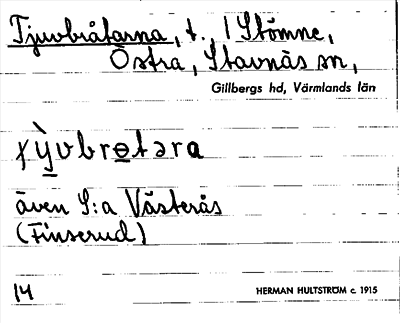 Tjuvbråtarna, t., 1 Stömne,
Östra, Stavnäs sn,
Gillbergs hd, Värmlands län
även S:a Västerås
(Finserud)
14 HERMAN HULTSTRÖM c. 1915